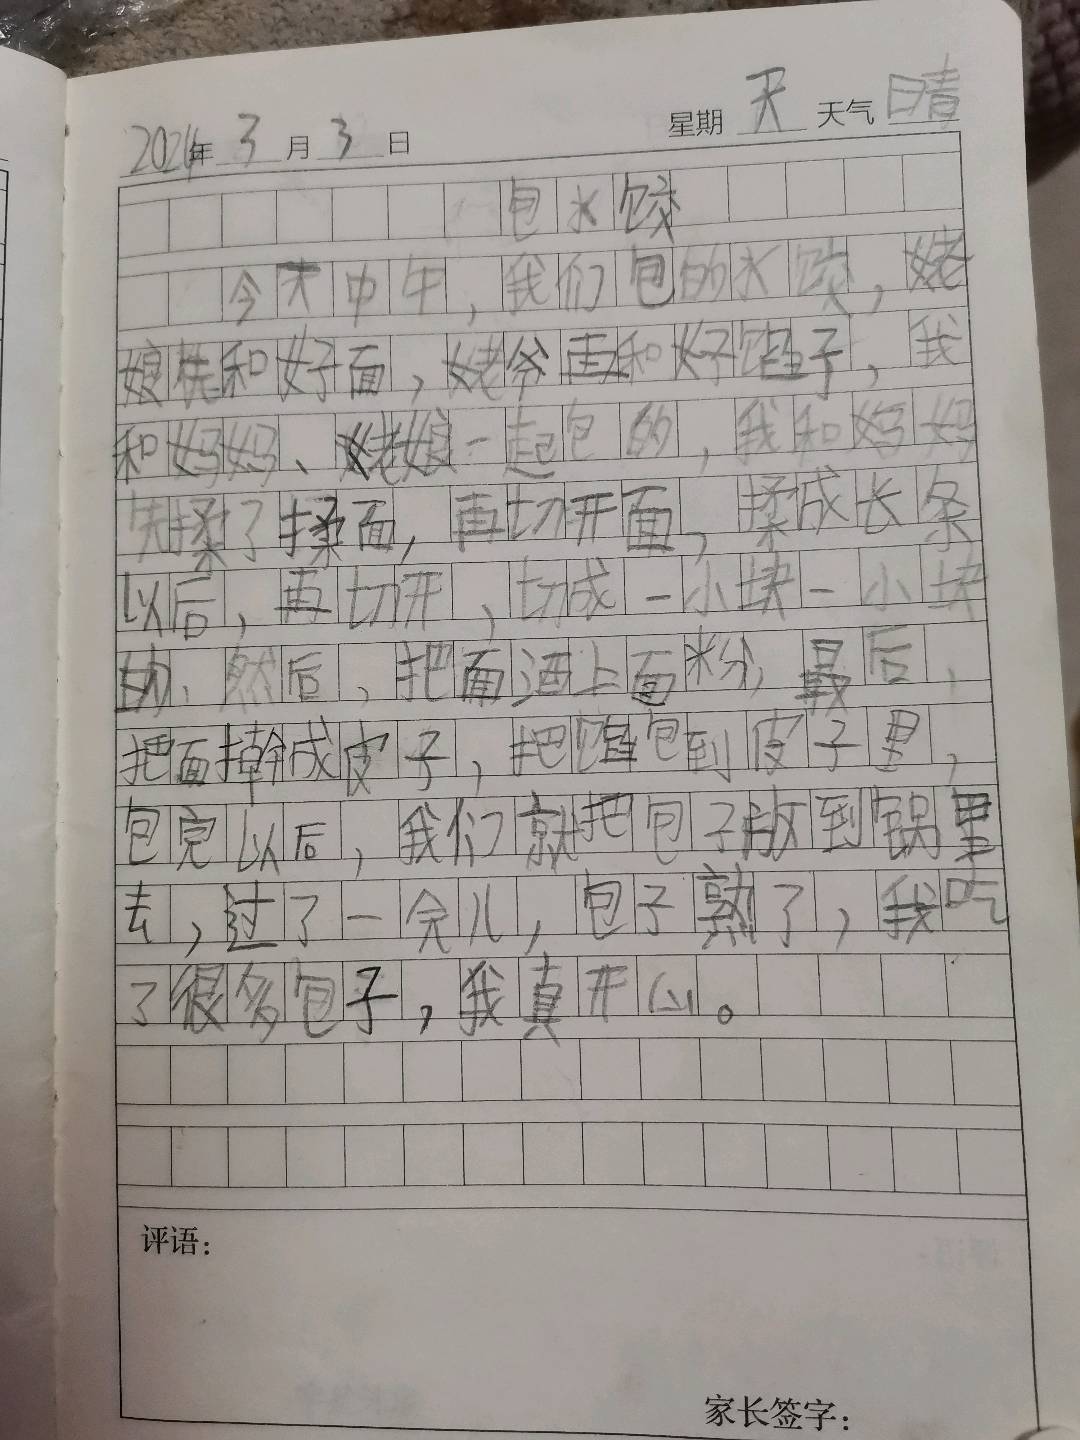 2024年 3 月 3 日 星期 天 天气 晴
包水饺
今天中午，我们包的水饺，姥
娘先和好面，姥爷再和好馅子，我
和妈妈、姥娘一起包的，我和妈妈
先揉了揉面，再切开面，揉成长条
以后，再切开，切成一小块一小块
的，然后，把面洒上面粉，最后，
把面擀成皮子，把馅包到皮子里，
包完以后，我们就把包子放到锅里
去，过了一会儿，包子熟了，我吃
了很多包子，我真开心。
评语：
家长签字：